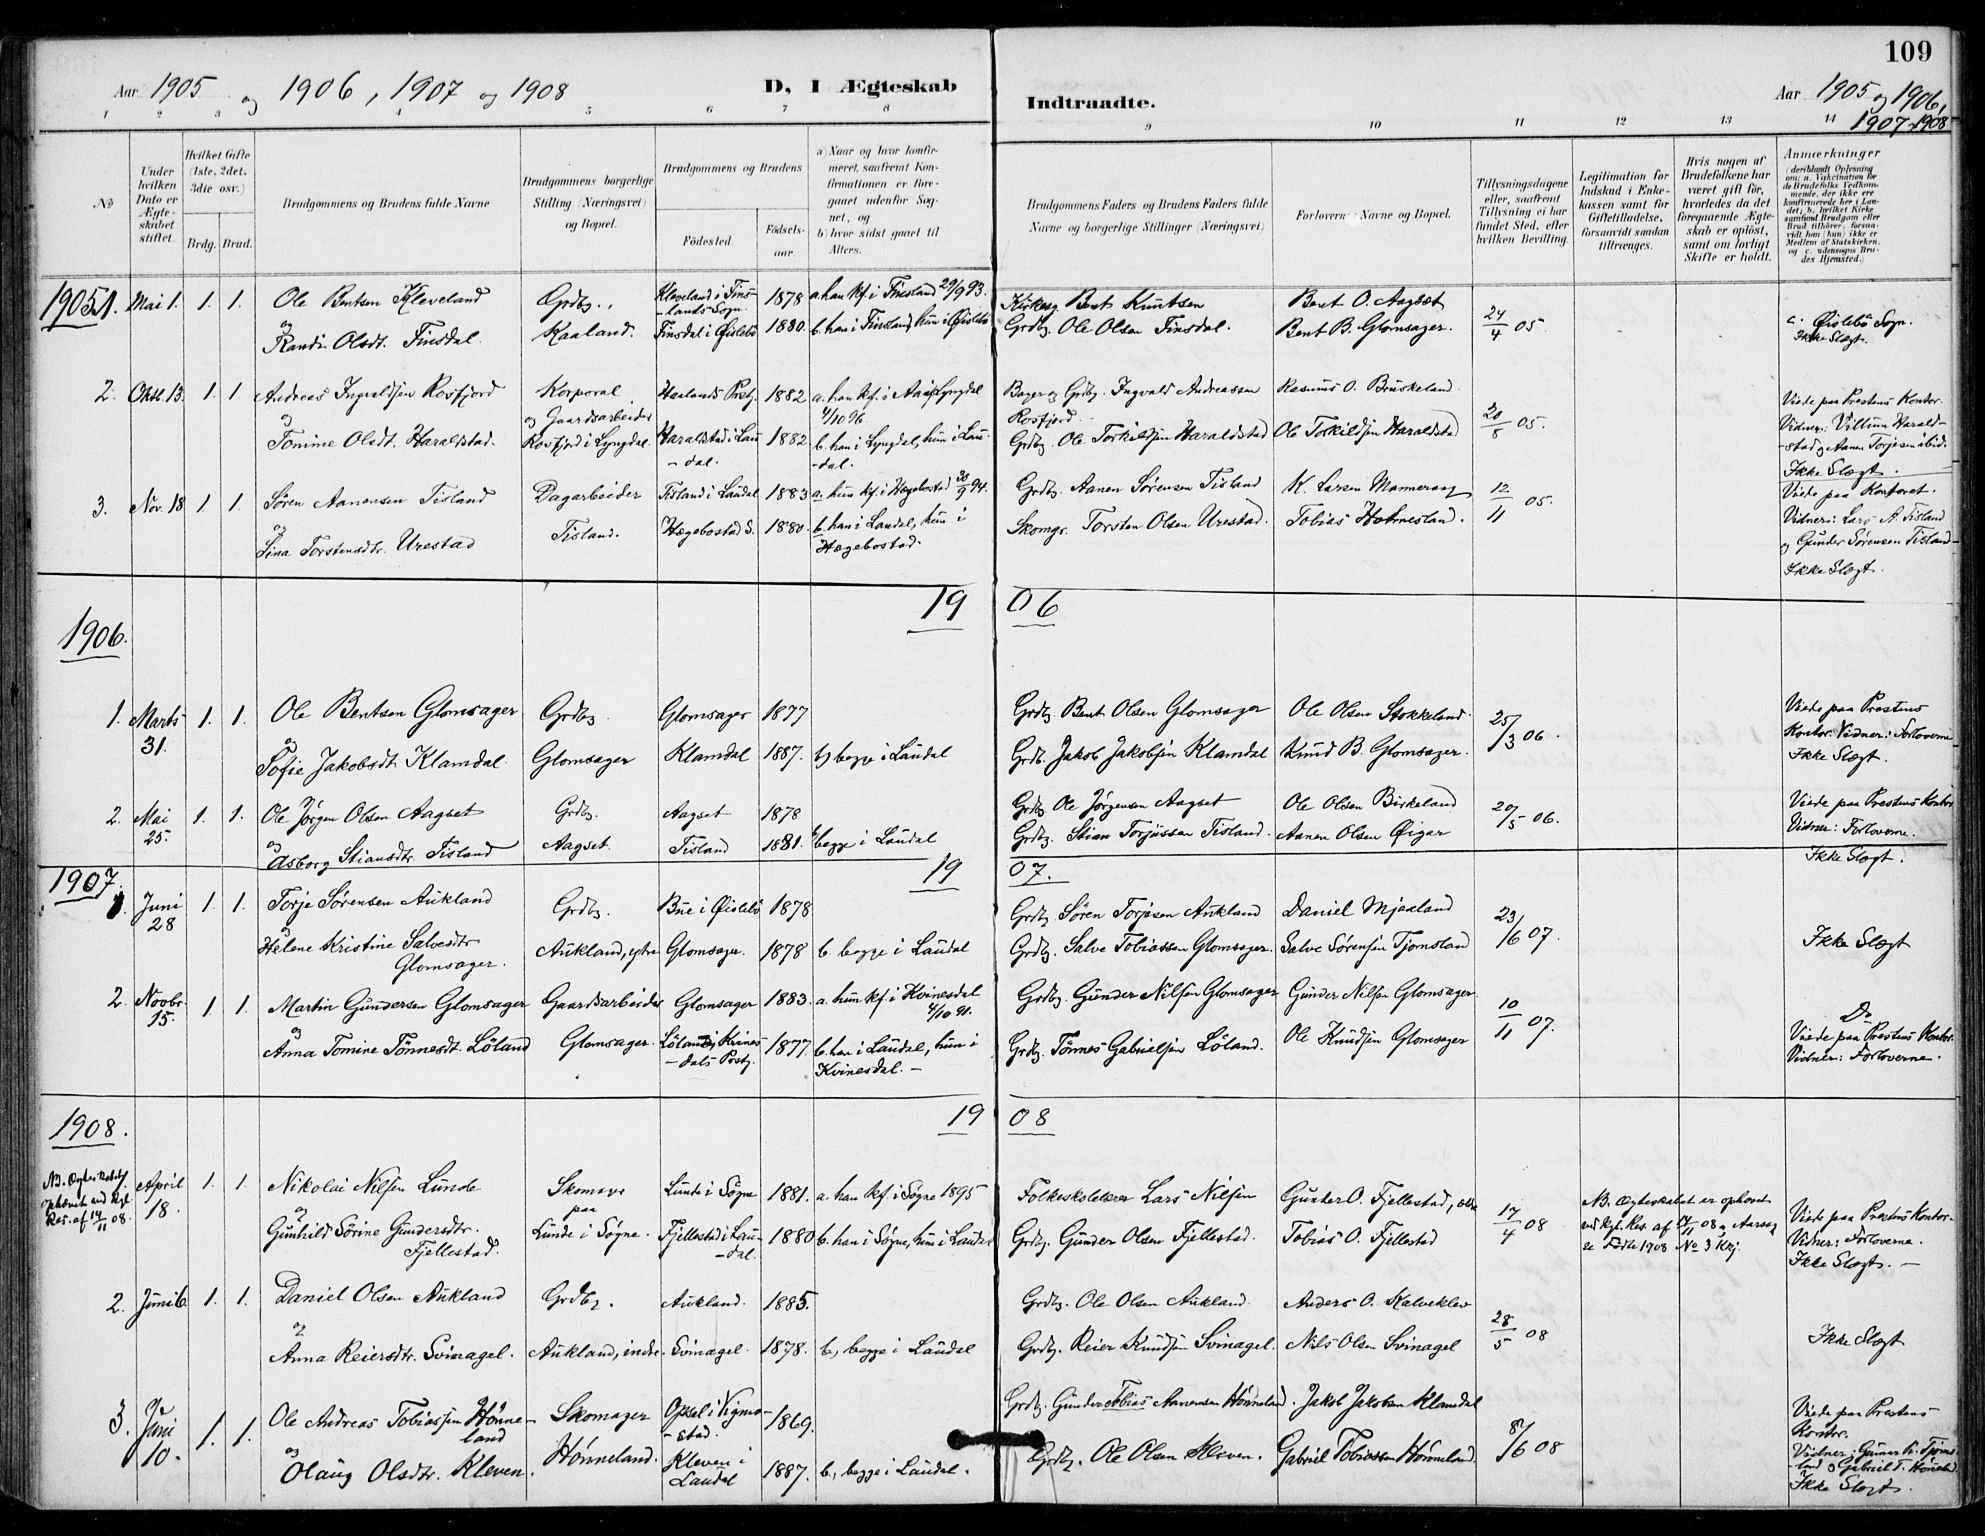 109
Aar 1905 og 1906, 1907 og 1908 D, I Ægteskab Indtraadte. Aar 1905 og 1906,
1907 1908
1 2 3 4 5 6 7 8 9 10 11 12 13 14
№
Under hvilken Dato er Ægteskabet stiftet.
Hvilket Gifte (1ste, 2det, 3die osv.)
Brdg. Brud.
Brudgommens og Brudens fulde Navne
Brudgommens borgerlige Stilling (Næringsvei) og Bopæl.
Brudgommens og Brudens
Fødested. Fødselsaar.
a) Naar og hvor konfirmeret, saafremt Konfirmationen er foregaaet udenfor Sognet, og
b) hvor sidst gaaet til Alters.
Brudgommens Faders og Brudens Faders fulde Navne og borgerlige Stillinger (Næringsvei)
Forlovernes Navne og Bopæl.
Tillysningsdagene eller, saafremt Tillysning ei har fundet Sted, efter hvilken Bevilling.
Legitimation for Indskud i Enkekassen samt for Giftetilladelse, forsaavidt saadan tiltrænges.
Hvis nogen af Brudefolkene har været gift før, hvorledes da det foregaaende Ægteskab er opløst, samt om lovligt Skifte er holdt.
Anmærkninger
(deriblandt Oplysning om: a. Vakcination for de Brudefolks Vedkommende, der ikke ere konfirmerede her i Landet; b. hvilket Kirkesamfund Brudgom eller Brud tilhører, forsaavidt han (hun) ikke er Medlem af Statskirken, og c. udensogns Brudes Hjemsted.)
1905 1. Mai 1. 1. 1. Ole Bentsen Kleveland Grdbr. Kleveland i Fins- 1878 a. han kf. i Finsland 29/9 93. Kirkesg. Bent Knutsen Bent O. Aagset 24/4 05. c. Øislebø Sogn.
-lands Sogn
og Randi Olsdt. Finsdal. Kaaland. Finsdal i Øislebø 1880. b. han i Finsland, hun i Øislebø Grdbg. Ole Olsen Finsdal. Bent B. Glomsager. Ikke Slægt.
2. Oktb. 13. 1. 1. Andreas Ingvaldsen Rosfjord Korporal Haalands Prstg. 1882 a. han kf. i Lyngdal Grdbg. Ingvald Andreassen Rasmus O. Bruskeland 20/8 05. Viede paa Prestens Kontor.
og Gaardsarbeider 4/10 96 Rosfjord Vidner: Villium Harald-
og Tomine Olsdt. Haralstad. Rosfjord i Lyngdal. Haralstad i Lau- 1882 b. han i Lyngdal, hun i Lau- Grdbg. Ole Torkildsen Haraldstad Ole Torkildsen Haraldstad -stad og Aanen Torjesen ibid.
-dal. -dal. Ikke Slægt.
3. Nov. 18 1 1 Søren Aanensen Tisland Dagarbeider Tisland i Laudal 1883 a. hun kf. i Hægebostad 30/9 94. Grdbg. Aanen Sørensen Tisland K. Larsen Manneraag 12/11 05. Viede paa Kontoret.
og Sina Torstensdtr. Urestad Tisland. Hægebostad S. 1880. b. han i Laudal, hun i Skomgr. Torsten Olsen Urestad. Tobias Holmesland. Vidner: Lars A. Tisland
Hægebostad. og Gunder Sørensen Tisland
Ikke Slægt.
1906. 19 06
1. Marts 31. 1. 1. Ole Bentsen Glomsager Grdbg. Glomsager 1877 Grdbg. Bent Olsen Glomsager Ole Olsen Stokkeland. 25/3 06. Viede paa Prestens
Kontor. Vidner: Forloverne
og Sofie Jakobsdt. Klamdal. Glomsager Klamdal 1887. b) begge i Laudal Grdb. Jakob Jakobsen Klamdal Knud B. Glomsager. Ikke Slægt.
2. Mai 25. 1. 1. Ole Jørgen Olsen Aagset Grdbg. Aagset 1878 Grdbg. Ole Jørgensen Aagset Ole Olsen Birkeland 20/5 06. Viede paa Prestens Kontor
og Asborg Stiansdtr. Tisland Aagset. Tisland 1881. b. begge i Laudal Grdbg. Stian Torjussen Tisland. Aanen Olsen Øigar Vidner: Forloverne.
Ikke Slægt.
1907. 19 07.
1. Juni 28 1. 1. Torje Sørensen Aukland Grdbg. Bue i Øislebø 1878 Grdbg. Søren Torjesen Aukland Daniel Mjaaland 23/6 07. Ikke Slægt
og Helene Kristine Salvesdtr. Aukland, ytre Glomsager. 1878 b. begge i Laudal Grdbg. Salve Tobiassen Glomsager. Salve Sørensen Tjomsland
Glomsager.
2. Novbr. 15. 1. 1. Martin Gundersen Glomsager Gaardsarbeider Glomsager 1883. a. hun kf. i Kvinesdal Grdbg. Gunder Nilsen Glomsager Gunder Nilsen Glomsager 10/11 07. Do
4/10 91.
og Anna Tomine Tønnesdt. Løland Glomsager. Løland i Kvines- 1877. b. han i Laudal, hun i Grdbg. Tønnes Gabrielsen Løland. Ole Knudsen Glomsager Viede paa Prestens Kontor.
-dals Prstg. Kvinesdal. Vidner: Forloverne.
1908. 19 08
NB. Ægteskabet ophævet ved Kgl. Res. af 14/11 08. April 18. 1. 1. Nikolai Nilsen Lunde Skomager Lunde i Søgne 1881. a. han kf. i Søgne 1895 Folkeskolelærer Lars Nilsen Gunder O. Fjellestad, 17/4 08 NB. Ægteskabet er ophævet Viede paa Prestens Kontor.
paa ved Kgl. Res. af 14/11 08
og Gunhild Sørine Gundersdtr. Lunde i Søgne. Fjellestad i Lau- 1880 b. han i Søgne, hun i Laudal Grdbg. Gunder Olsen Fjellestad. Tobias O. Fjellestad se Fødte 1908 No 3 Kj. Vidner: Forloverne.
Fjellestad. -dal. Ikke Slægt.
2. Juni 6. 1. 1. Daniel Olsen Aukland Grdbg. Aukland. 1885. Grdbg. Ole Olsen Aukland. Anders O. Kalveklev 28/5 08 Ikke Slægt
og Anna Reiersdtr. Svinagel. Aukland, indre. Svinagel. 1878. b, begge i Laudal Grdbg. Reier Knudsen Svinagel. Nils Olsen Svinagel
3. Juni 10. 1. 1. Ole Andreas Tobiassen Hønne- Skomager Opsal i Vigmo- 1869. Grdbg. Gunder Tobias Aanensen Hønneland. Jakob Jakobsen Klamdal 8/6 08 Viede paa Prestens
land -stad. Kontor.
og Olaug Olsdtr. Kleven. Hønneland. Kleven i 1887. b, begge i Laudal. Grdbg. Ole Olsen Kleven. Gabriel Tobiassen Hønneland. Vidner: Tjoms-
Laudal -land og Gabriel T. Hønneland.
Ikke Slægt.